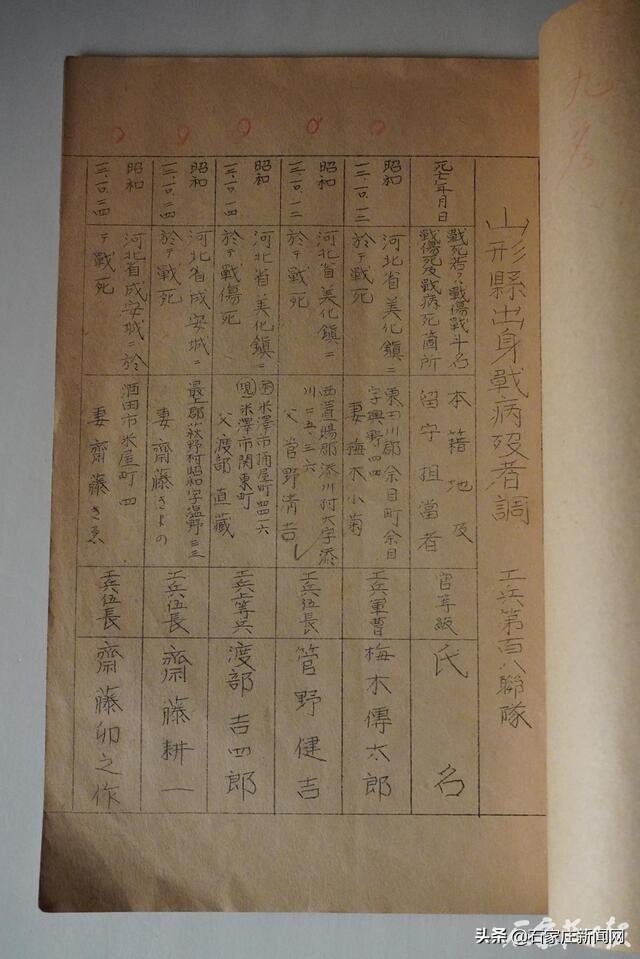 山形縣出身戰病歿者調　工兵第百八聯隊
死亡年月日
戰死若ハ戰傷戰斗名
戰傷死及戰病死箇所
本籍地及
留守担當者
官等級
氏名
昭和
一二、一〇、一二
河北省美化鎮ニ
於テ戰死
東田川郡余目町余目
字興野四四
妻 梅木小菊
工兵軍曹
梅木傳太郎
昭和
一二、一〇、一二
河北省美化鎮ニ
於テ戰死
西置賜郡添川村大字添
川二五、三六
父 菅野清吉
工兵伍長
菅野健吉
昭和
一二、一〇、一四
河北省美化鎮ニ
於テ戰傷死
米澤市桶屋町四四一六
現 米澤市関東町
父 渡部直藏
工兵上等兵
渡部吉四郎
昭和
一二、一〇、二四
河北省成安城ニ
於テ戰死
最上郡萩野村昭和字温野三三
妻 齋藤さよの
工兵伍長
齋藤耕一
昭和
一二、一〇、二四
河北省成安城ニ於
テ戰死
酒田市米屋町四
妻 齋藤きゑ
工兵伍長
齋藤卯之作
九名
头条 @石家庄新闻网